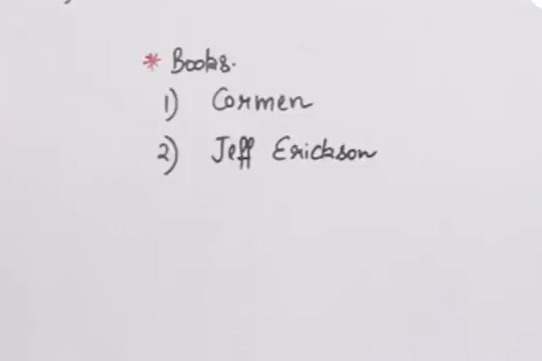 * Books.
1) Cormen
2) Jeff Erickson